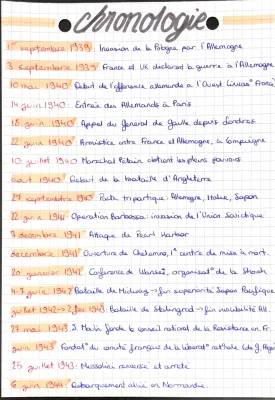 chronologie
1er septembre 1939: Invasion de la Pologne par l'Allemagne
3 septembre 1939: France et UK déclarent la guerre à l'All.
10 mai 1940: Début de l'offensive allemande à l'Ouest
14 juin 1940: Entrée des Allemands à Paris
18 juin 1940: Appel du General de Gaulle depuis Londres
22 juin 1940: Armistice entre France et Allemagne, à
10 juillet 1940: Maréchal Pétain obtient les pleins pouvoirs
août 1940: Début de la bataille d'Angleterre
27 septembre 1940: Pacte tripartique: Allemagne, Italie, Japon
22 juin 1941: Operation Barbarossa: invasion de l'Union Soviétique
7 décembre 1941: Attaque de Pearl Harbor
décembre 1941: Ouverture de Chelmno, 1er centre de mise à mort.
20 janvier 1942: Conférence de Wansee, organisat° de la Shoah
4-7 juin 1942: Bataille de Midway → fin supériorité Japon Pacifique
juillet 1942 → 2 fév 1943: Bataille de Stalingrad → fin invincibilité All.
27 mai 1943: J. Moulin fonde le conseil national de la Résistance en Fr.
juin 1943: Fondat° du comité français de la libérat° nationale
25 juillet 1943: Mussolini renversé et arrêté
6 juin 1944: Débarquement allié en Normandie.